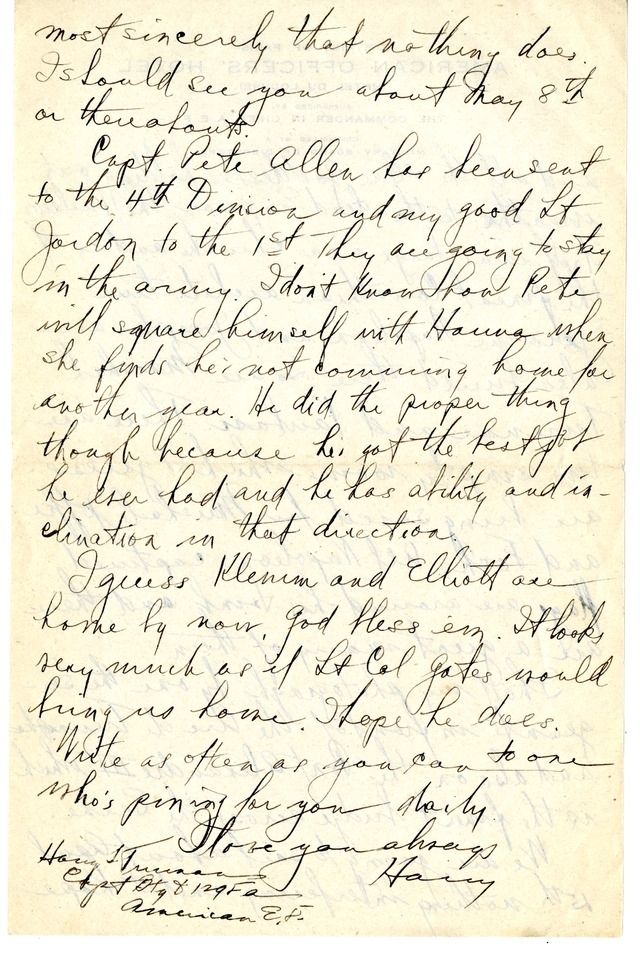 most sincerely that nothing does.
I should see you about May 8th
or thereabouts.
Capt. Pete Allen has been sent
to the 4th Division and my good Lt
Jordon to the 1st They are going to stay
in the army. I don't know how Pete
will square himself with Hanna when
she finds he's not comming home for
another year. He did the proper thing
though because he's got the best job
he ever had and he has ability and in-
clination in that direction.
I guess Klemm and Elliott are
home by now, God bless em. It looks
very much as if Lt Col Gates would
bring us home. I hope he does.
Write as often as you can to one
who's pining for you daily
I love you always
Harry
Harry S Truman
Capt Btry D 129 FA
American E.F.
AMERICAN OFFICERS' HOTEL
THE COMMANDER IN CHIEF A.E.F.